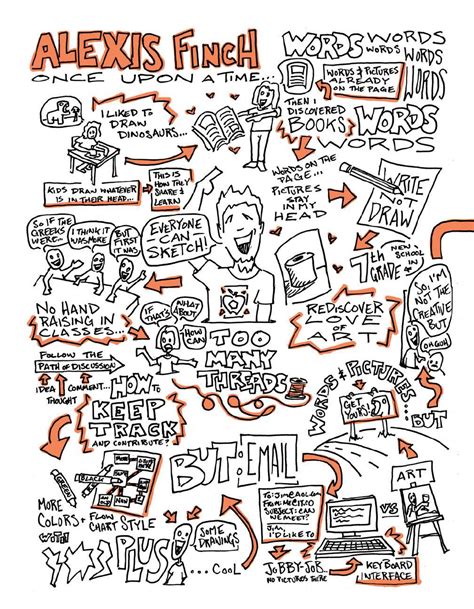 ALEXIS FINCH
ONCE UPON A TIME...
I LIKED TO
DRAW
DINOSAURS...
KIDS DRAW WHATEVER
IS IN THEIR HEAD...
THIS IS
HOW THEY
SHARE &
LEARN
THEN I
DISCOVERED
BOOKS
WORDS
WORDS
WORDS
WORDS
WORDS
WORDS & PICTURES
ALREADY
ON THE PAGE..
WORDS
WORDS
WORDS ON THE
PAGE...
PICTURES
STAY
IN MY
HEAD
WRITE
NOT
DRAW
7TH
GRADE
NEW
SCHOOL
IN
SO, I'M
NOT THE
CREATIVE
BUT
REDISCOVER
LOVE
OF
ART
EVERYONE
CAN
SKETCH!
SO IF THE
GREEKS
WERE-
I THINK IT
WAS MORE
BUT
FIRST
IT WAS
NO HAND
RAISING IN
CLASSES...
IF
THAT'S
WHAT
ABOUT
HOW
CAN
TOO
MANY
THREADS
FOLLOW THE
PATH OF DISCUSSION
IDEA
THOUGHT
COMMENT...
HOW
TO
KEEP
TRACK
AND CONTRIBUTE?
WORDS & PICTURES...
GET
YOURS!
...BUT
BLACK
GREEN
MORE
COLORS + FLOW
CHART STYLE
PLUS
SOME
DRAWINGS
...COOL
BUT: EMAIL
SUBJECT: CAN
WE MEET?
JIM,
I'D LIKE TO
JOBBY-JOB...
NO PICTURES THERE
VS
ART
KEYBOARD
INTERFACE